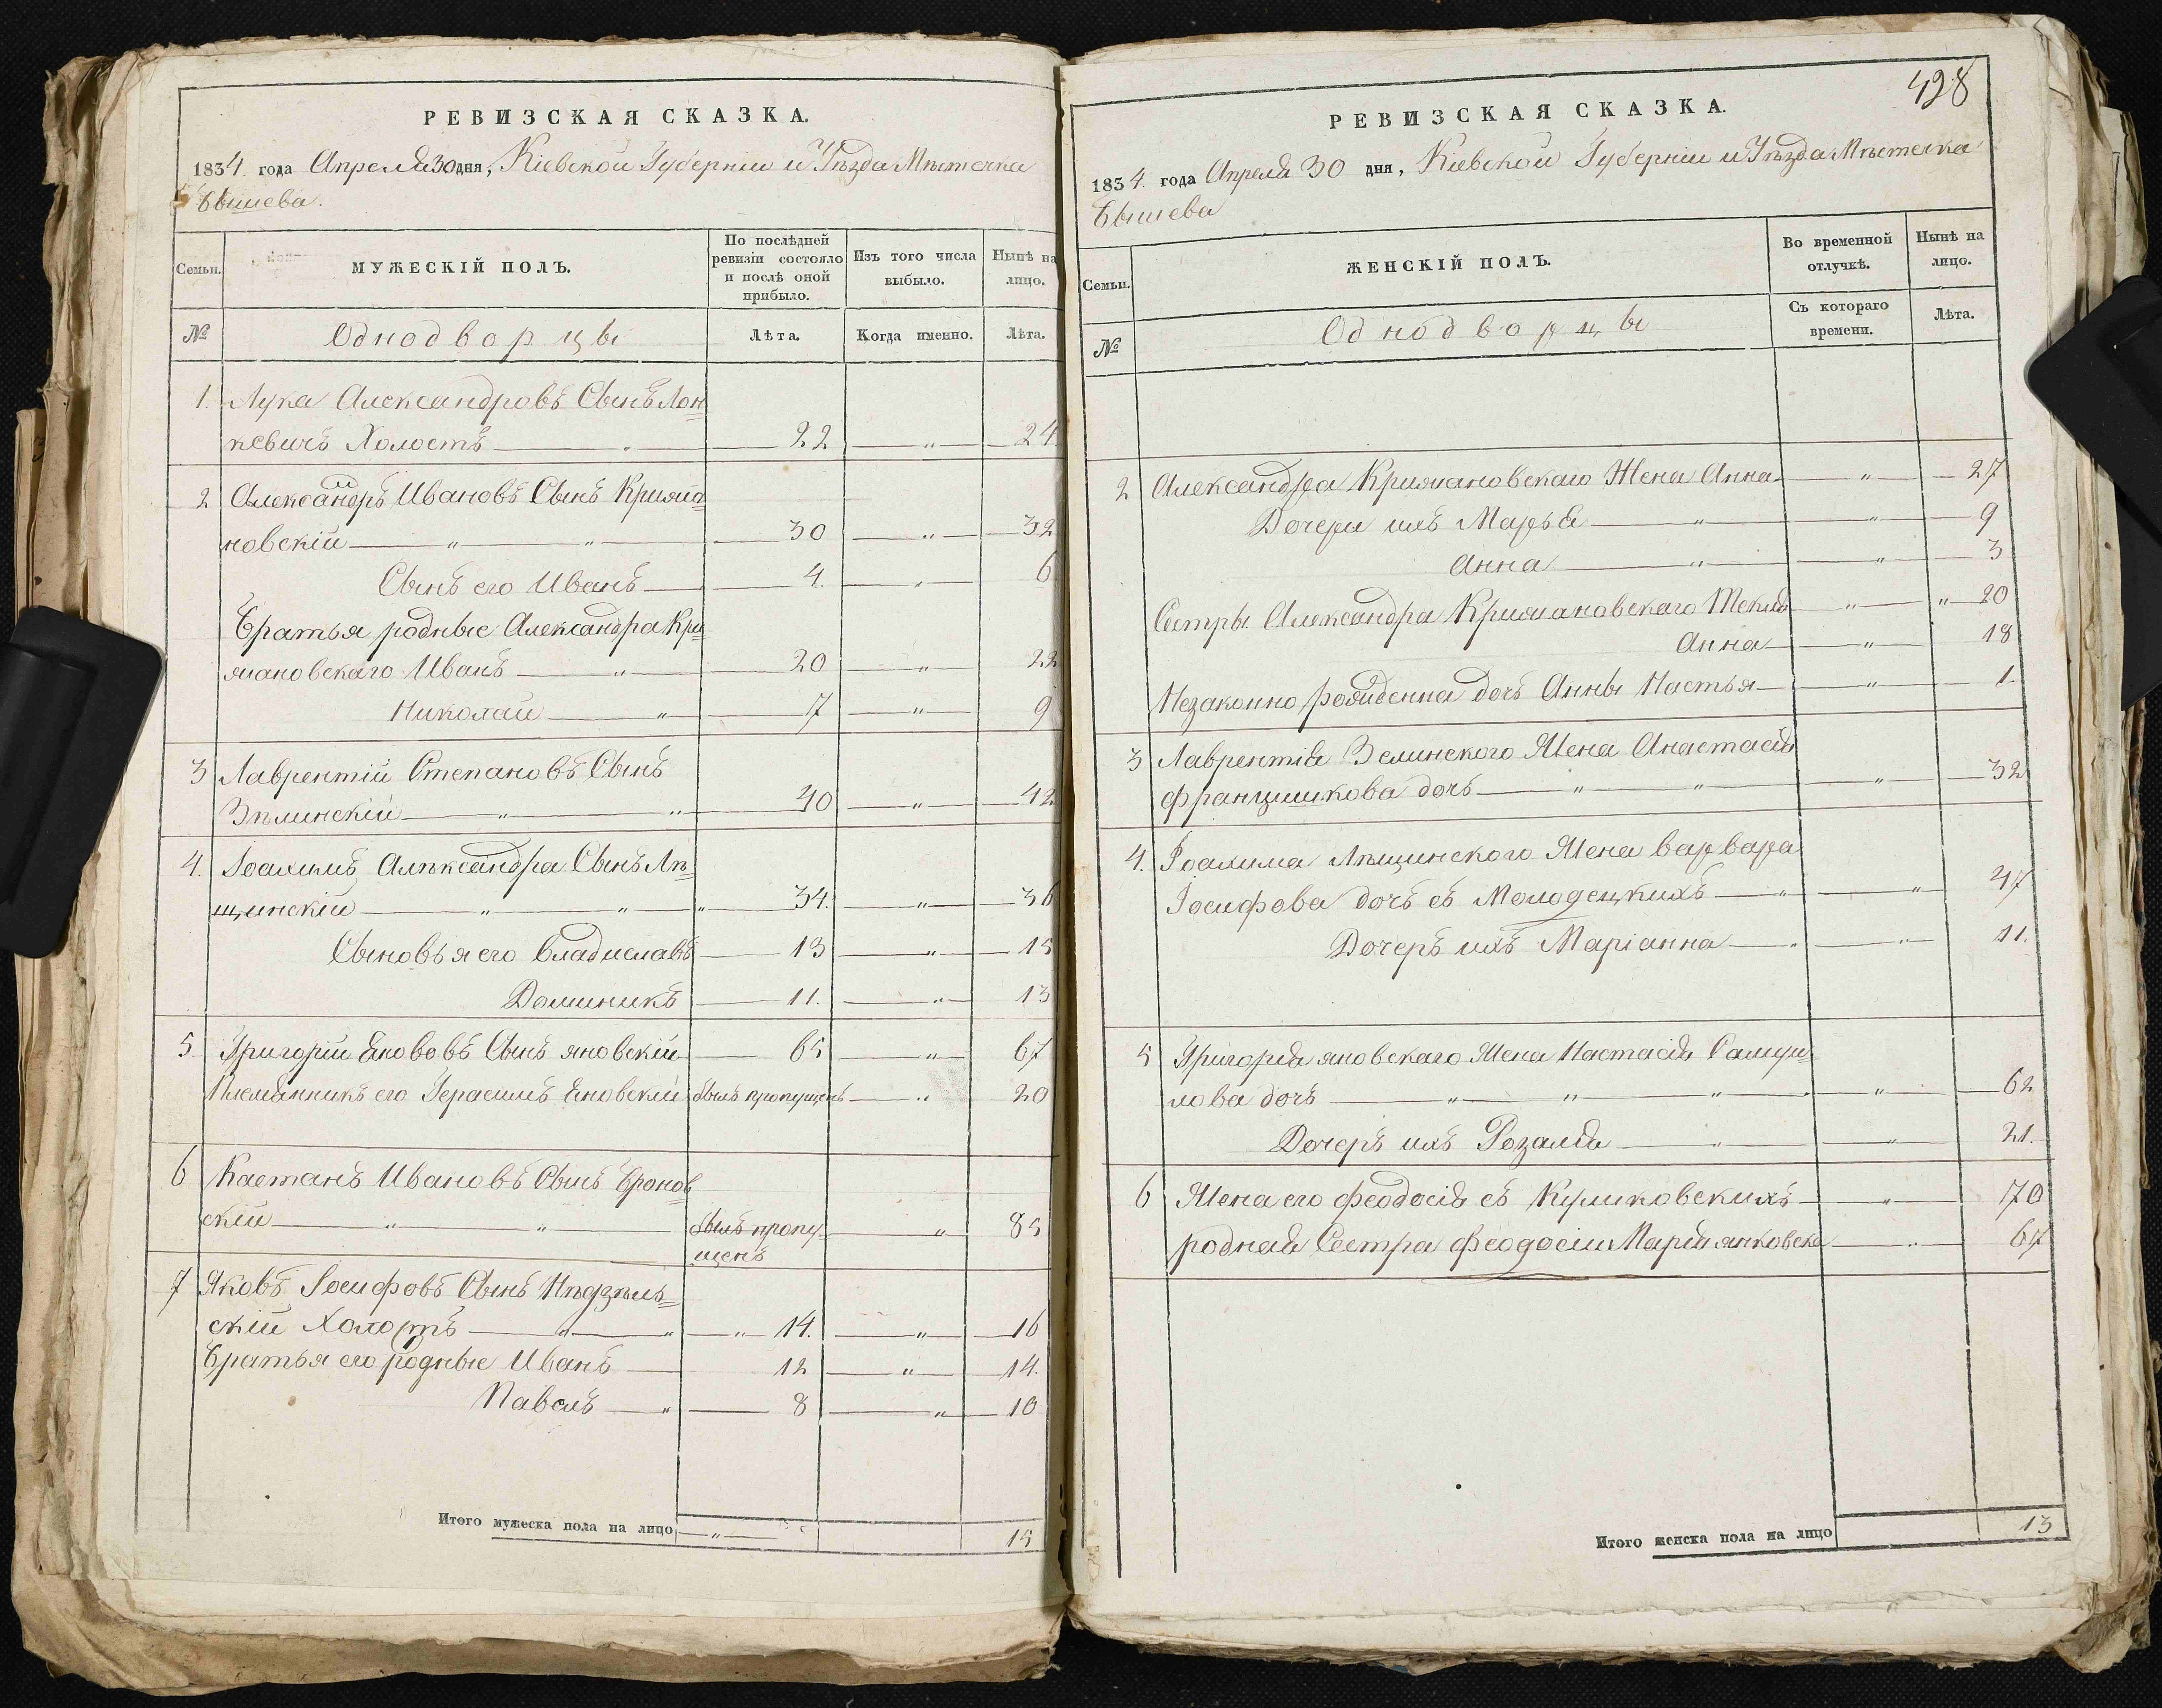 РЕВИЗСКАЯ СКАЗКА.
1834 года Апреля 30 дня, Кіевской Губерніи и Уѣзда Мѣстечка
Бышева.
Семьи. МУЖЕСКІЙ ПОЛЪ. По послѣдней ревизіи состояло и послѣ оной прибыло. Изъ того числа выбыло. Нынѣ на лицо.
№ Однодворцы Лѣта. Когда именно. Лѣта.
1. Лука Александровъ Сынъ Лон=
кевичъ Холостъ — 22 — „ — 24
2 Александръ Ивановъ Сынъ Крижа=
новскій — „ — „ — 30 — „ — 32
Сынъ его Иванъ — 4. — „ — 6
Братья родные Александра Кри=
жановскаго Иванъ — „ — 20 — „ — 22
Николай — „ — 7 — „ — 9
3 Лаврентій Степановъ Сынъ
Зѣлинскій — „ — „ — 40 — „ — 42
4. Іоахимъ Алѣксандра Сынъ Лѣ=
щинскій — „ — „ — „ 34. — „ — 36
Сыновья его Владиславъ — 13 — „ — 15
Доминикъ — 11. — „ — 13
5 Григорій Яковвъ Сынъ Яновскій — 65 — „ — 67
Племянникъ его Герасимъ Яновскій былъ пропущенъ — „ 20
6 Каетанъ Ивановъ Сынъ Бронов
скій — „ — „ — былъ пропу= — „ — 85
щенъ
7 Яковъ Іосифовъ Сынъ Нѣдзѣль=
скій Холостъ — „ — „ — „ 14. — „ — 16
Братья его родные Иванъ — 12 — „ — 14.
Павелъ — „ — 8 — „ — 10
Итого мужеска пола на лицо — „ — 15
428
РЕВИЗСКАЯ СКАЗКА.
1834. года Апреля 30 дня, Кіевской Губерніи и Уѣзда Мѣстечка
Бышева
Семьи. ЖЕНСКІЙ ПОЛЪ. Во временной отлучкѣ. Нынѣ на лицо.
№ Однодворцы Съ котораго времени. Лѣта.
2 Александра Крижановскаго Жена Анна — „ — 27
Дочери ихъ Марья — „ — „ — 9
Анна — „ — „ — 3
Сестры Александра Крижановскаго Текля — „ — „ 20
Анна — „ — 18
Незаконно рожденна дочъ Анны Настья — „ — 1.
3 Лаврентія Зелинского Жена Анастасія
францишкова дочъ — „ — „ — „ — 32
4. Іоахима Лѣщинского Жена Варвара
Іосифова дочъ съ Молодецкихъ — „ — „ — 47
Дочеръ ихъ Маріанна — „ — „ — 11.
5 Григорія Яновскаго Жена Настасія Самуи=
лова дочъ — „ — „ — „ — „ — 62
Дочеръ ихъ Розалія — „ — „ — 21.
6 Жена его Феодосія съ Куликовскихъ — „ — 70
родная Сестра Феодосіи Марія Янковска — „ — 67
Итого женска пола на лицо 13